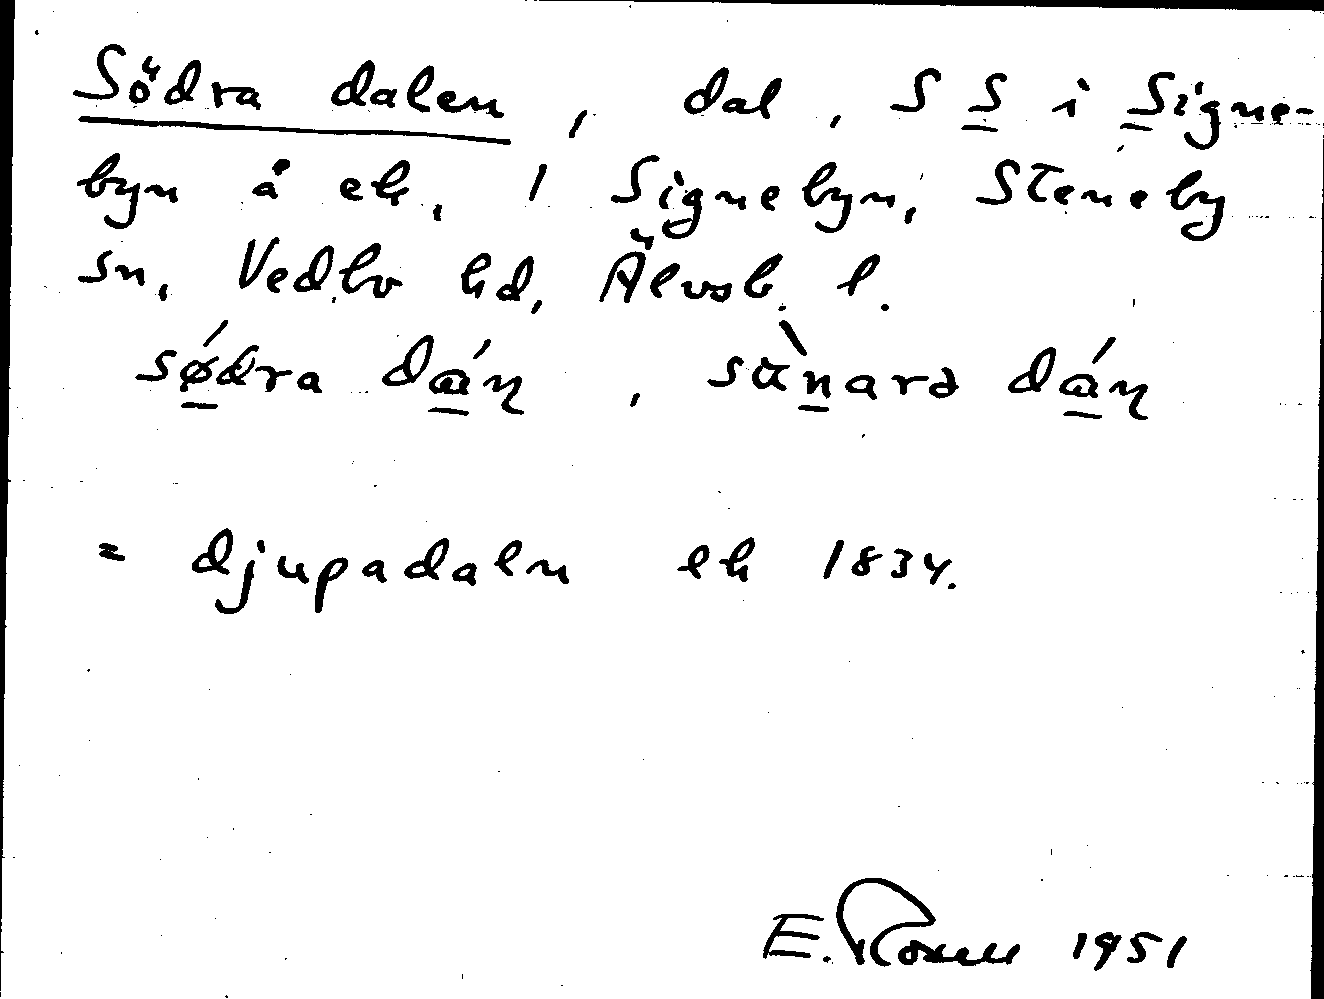 Södra dalen, dal, S S i Signe-
byn å ek, 1 Signebyn, Steneby
sn, Vedbo hd, Älvsb. l.
sødra dáɳ, sànarə dáɳ
= djupadaln ek 1834.
E. 1951